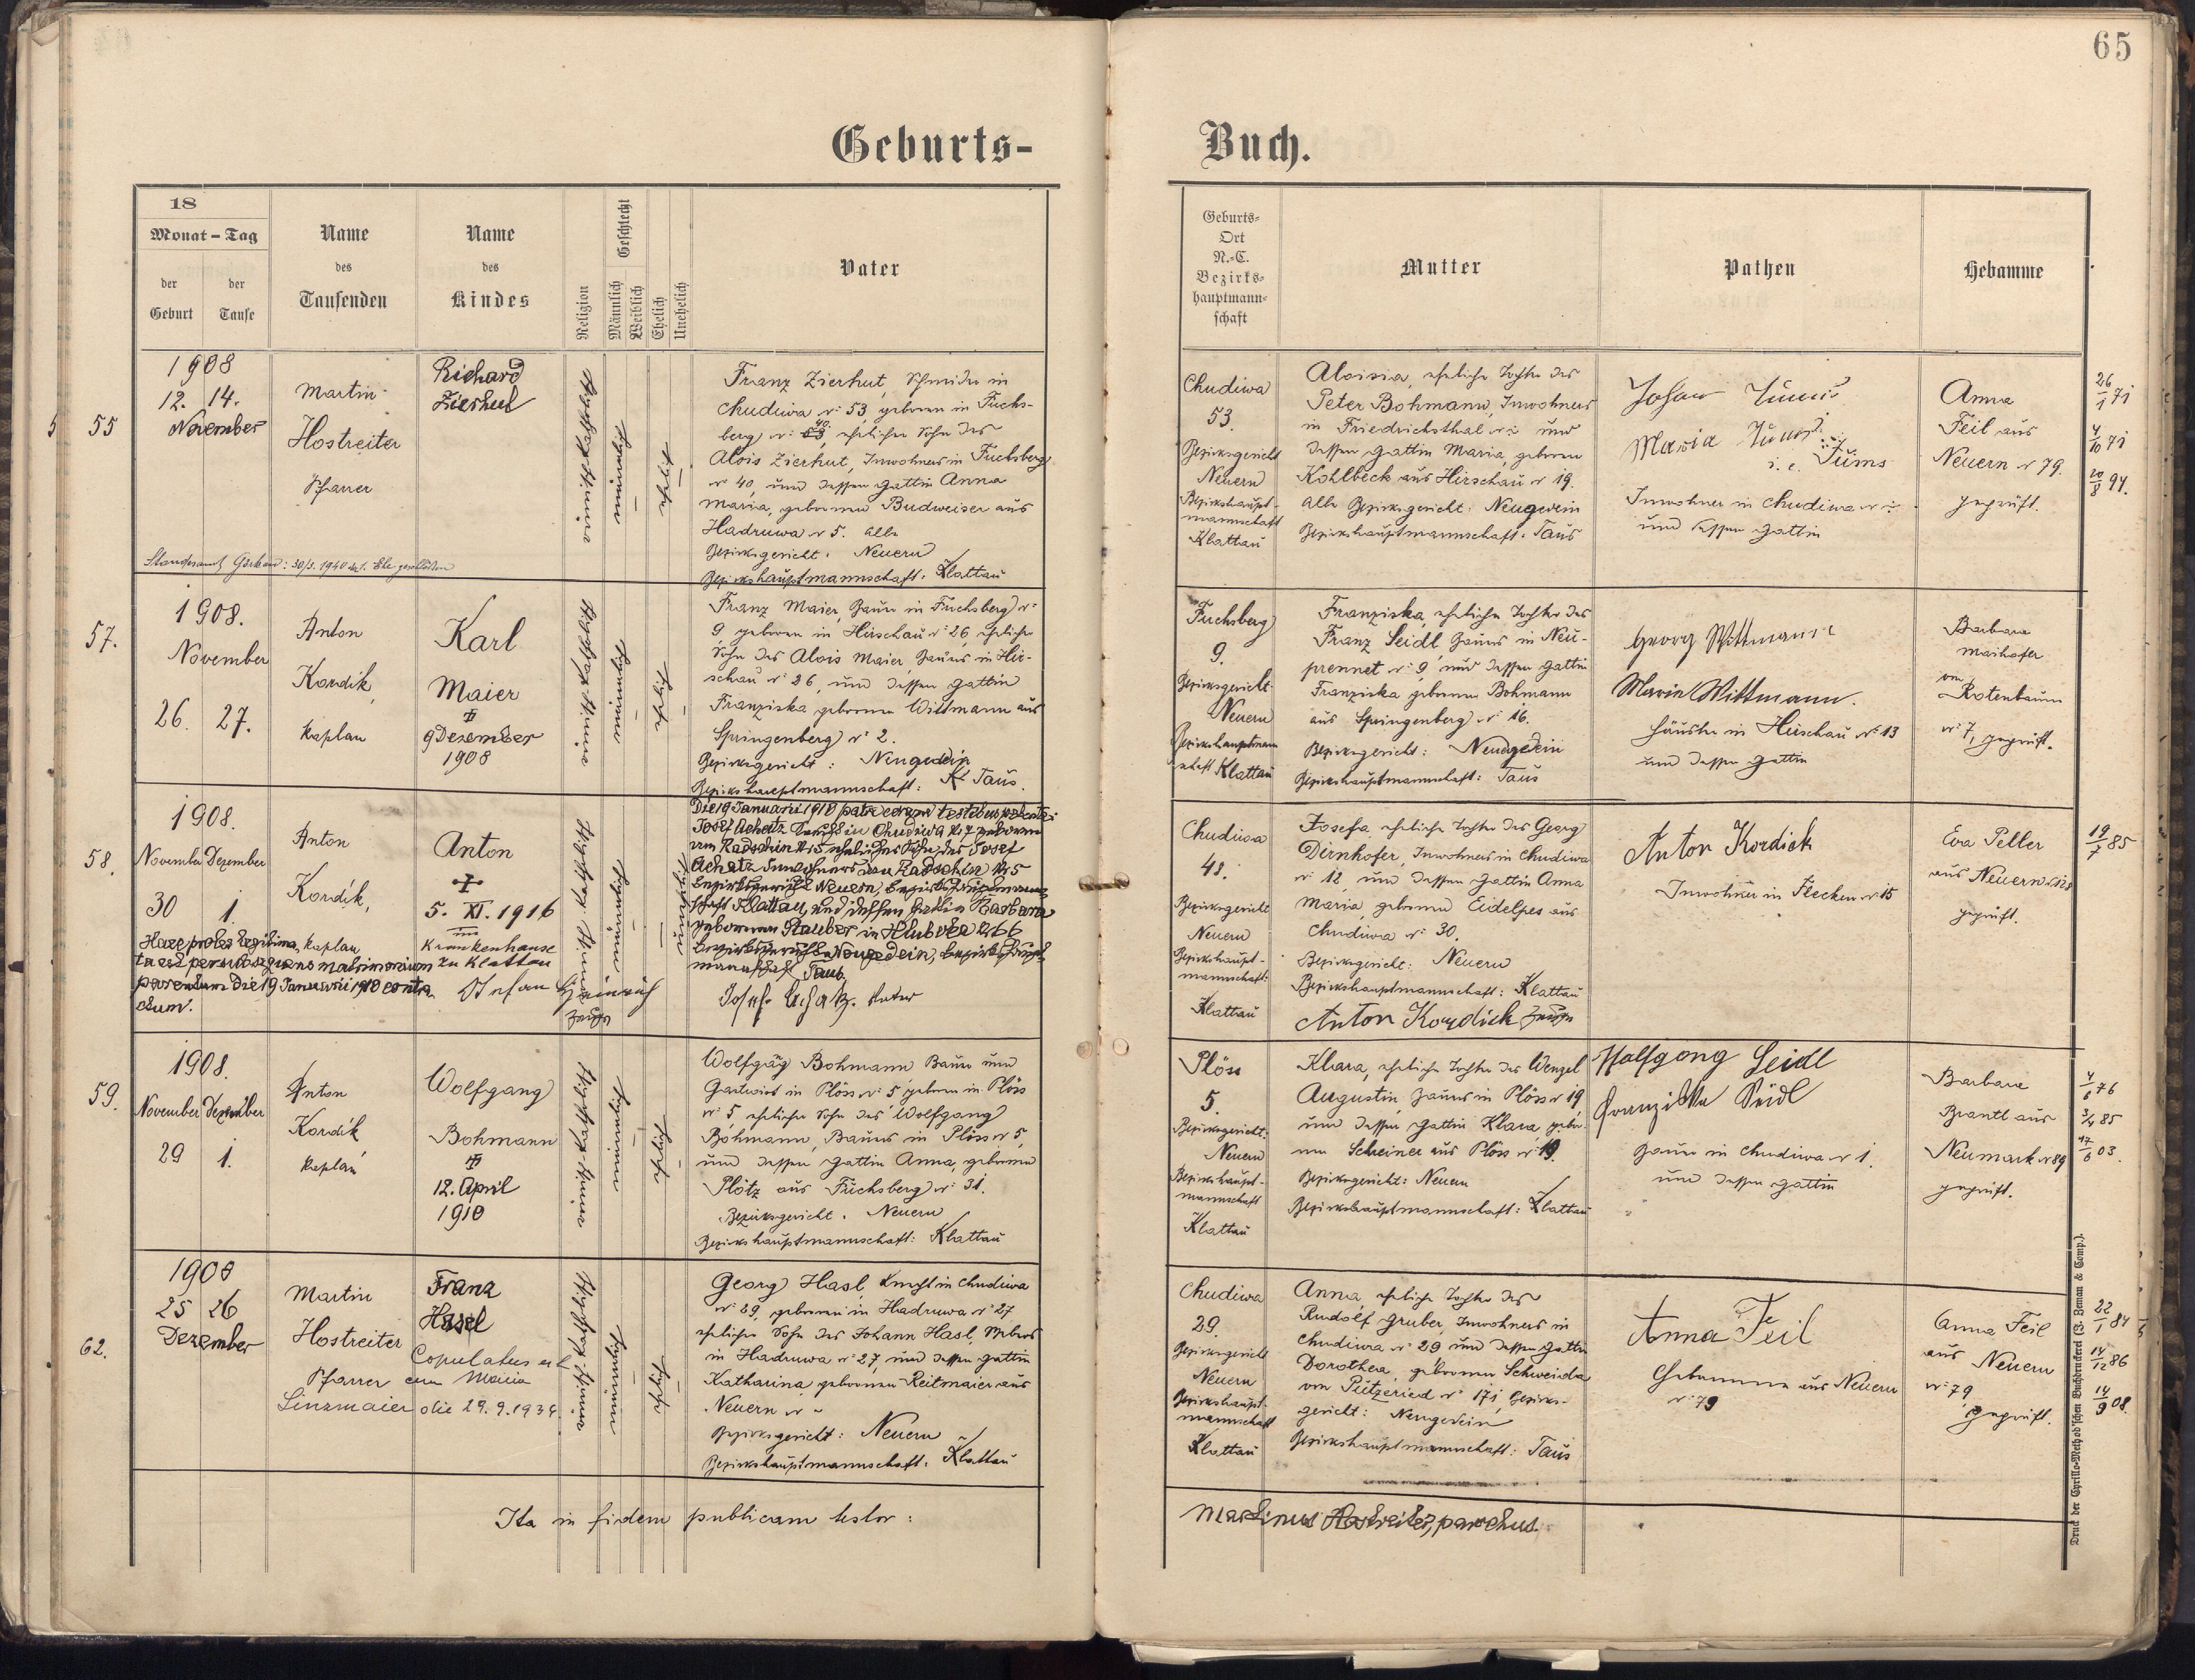 65
Geburts-Buch.
18
Monat-Tag
der Geburt
der Taufe
Name des Taufenden
Name des Kindes
Religion
Geschlecht
Männlich
Weiblich
Ehelich
Unehelich
Vater
Geburts-
Ort
N.-C.
Bezirks-
hauptmann-
schaft
Mutter
Pathen
Hebamme
55
1908
12. 14.
November
Martin
Hostreiter
Pfarrer
Richard
Zierhut
Franz Zierhut, Schmider in
Chudiwa N: 53, geboren in Fuchs-
berg N: 40, ehelicher Sohn des
Alois Zierhut, Inwohners in Fuchsberg
N 40, und dessen Gattin Anna
Maria, geborene Budweiser aus
Hadruwa N 5. Alle
Bezirksgericht: Neuern
Bezirkshauptmannschaft: Klattau
Chudiwa
53.
Bezirksgericht
Neuern
Bezirkshaupt-
mannschaft
Klattau
Aloisia, eheliche Tochter des
Peter Bohmann, Inwohners
in Friedrichsthal und
dessen Gattin Maria, geborene
Kohlbeck aus Hirschau N 19.
Alle Bezirksgericht: Neugedein
Bezirkshauptmannschaft: Taus
Maria
i. e. Tüms
Inwohner in Chudiwa
und dessen Gattin
Anna
Feil aus
Neuern N 79.
geprüft.
26/1 71
4/10 71
20/8 94.
57.
1908.
November
26. 27.
Anton
Kordik,
Kaplan
Karl
Maier
9 Dezember
1908
Franz Maier, Bauer in Fuchsberg N:
9, geboren in Hirschau N: 26, ehelicher
Sohn des Alois Maier, Bauers in Hir-
schau N: 26, und dessen Gattin
Franziska, geborene Wittmann aus
Springenberg N: 2.
Bezirksgericht: Neugedein
Bezirkshauptmannschaft: Taus.
Fuchsberg
9.
Bezirksgericht:
Neuern
Bezirkshauptmann
schaft Klattau
Franziska, eheliche Tochter des
Franz Seidl, Bauers in Neu-
prennet N: 9, und dessen Gattin
Franziska geborene Bohmann
aus Springenberg N: 16.
Bezirksgericht: Neugedein
Bezirkshauptmannschaft: Taus
Georg Wittmann
Maria Wittmann.
Häusler in Hirschau N: 13
und dessen Gattin
Barbara
Maihofer
von
Rotenbaum
N: 7, geprüft.
58.
1908.
November Dezember
30 1.
Anton
Kordik,
Kaplan
Haec proles legitima
ta est per subsequens matrimonium
parentum die 19 Januarii 1910 contra
ctum.
Anton
5. XI. 1916
im
Krankenhause
zu Klattau
Zeuge
Die 19 Januarii 1910 pater coram testibus
Josef Achatz in Chudiwa N: 7 geboren
von Radschin N: 5 ehelicher Sohn des Josef
Achatz Inwohners von Radschin N: 5
Bezirksgericht Neuern, Bezirkshauptmann
schaft Klattau, und dessen Gattin Barbara
geborenen Stauber in Hluboka N: 6
Bezirksgericht Neugedein, Bezirkshaupt-
mannschaft Taus.
Josef Achatz. Vater
Chudiwa
48.
Bezirksgericht
Neuern
Bezirkshaupt-
mannschaft:
Klattau
Josefa, eheliche Tochter des Georg
Dirnhofer, Inwohners in Chudiwa
N: 12, und dessen Gattin Anna
Maria, geborene Eidelpes aus
Chudiwa N: 30.
Bezirksgericht: Neuern
Bezirkshauptmannschaft: Klattau
Anton Kordick Zeuge
Anton Kordick
Inwohner in Flecken N 15
Eva Peller
aus Neuern N 128
geprüft.
19/7 85
59.
1908.
November Dezember
29 1.
Anton
Kordik,
Kaplan
Wolfgang
Bohmann
12. April
1910
Wolfgang Bohmann Bauer und
Gastwirt in Plöss N: 5 geboren in Plöss
N: 5, ehelicher Sohn des Wolfgang
Bohmann, Bauers in Plöss N: 5,
und dessen Gattin Anna, geborene
Plötz aus Fuchsberg N: 31.
Bezirksgericht: Neuern
Bezirkshauptmannschaft: Klattau
Plöss
5.
Bezirksgericht:
Neuern
Bezirkshaupt-
mannschaft
Klattau
Klara, eheliche Tochter des Wenzel
Augustin, Bauers in Plöss N 19,
und dessen Gattin Klara, gebor-
nen Schreiner aus Plöss N: 19.
Bezirksgericht: Neuern
Bezirkshauptmannschaft: Klattau
Wolfgang Seidl
Franziska Seidl
Bauer in Chudiwa N 1.
und dessen Gattin
Barbara
Brantl aus
Neumark N 89
geprüft.
4/6 76
3/4 85
17/6 03.
62.
1908
25 26
Dezember
Martin
Hostreiter
Pfarrer
Franz
Hasel
Copulatus est
cum Maria
Linzmaier die 29.9.1934.
Georg Hasl, Knecht in Chudiwa
N: 29, geboren in Hadruwa N: 27
ehelicher Sohn des Johann Hasl, Webers
in Hadruwa N: 27, und dessen Gattin
Katharina, geborenen Reitmaier aus
Neuern
Bezirksgericht: Neuern
Bezirkshauptmannschaft: Klattau
Chudiwa
29.
Bezirksgericht
Neuern
Bezirkshaupt-
mannschaft
Klattau
Anna, eheliche Tochter des
Rudolf Gruber, Inwohners in
Chudiwa N: 29 und dessen Gattin
Dorothea, geborenen Schweida
von Putzeried N: 17; Bezirks-
gericht: Neugedein
Bezirkshauptmannschaft: Taus
Anna Feil
Hebamme aus Neuern
N: 79
Anna Feil
aus Neuern
N: 79,
geprüft.
22/1 84
14/12 86
14/9 08.
Ita in fidem publicam testor:
Martinus Hostreiter, parochus.
Druck der Cyrillo-Method'schen Buchdruckerei (J. Zeman & Comp.).